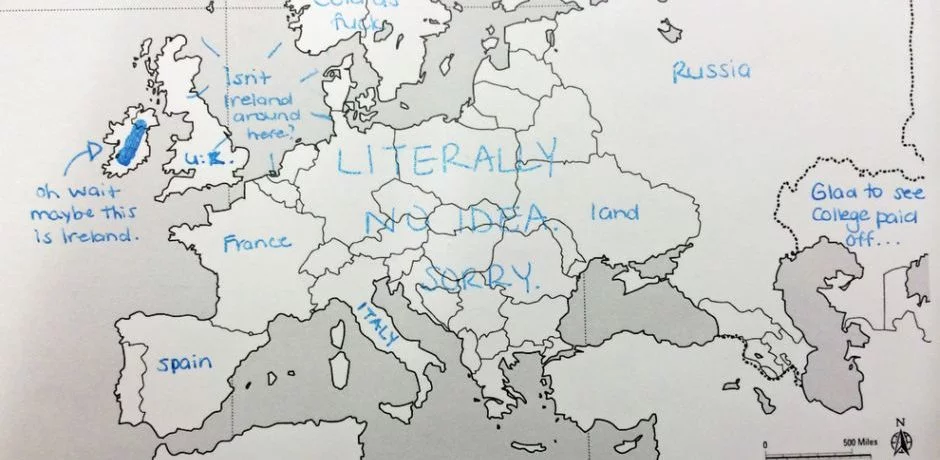 Cold as
fuck
Isn't
Ireland
around
here?
Russia
oh wait
maybe this
is Ireland.
U.K.
LITERALLY
NO IDEA.
SORRY.
land
Glad to see
College paid
off...
France
ITALY
Spain
0
500 Miles
N